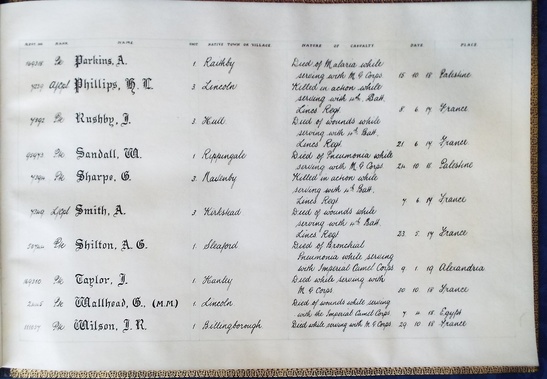 RANK NAME UNIT NATIVE TOWN OR VILLAGE MANNER OF CASUALTY DATE PLACE
Pte Parkins, A. 1 Raithby Died of Malaria while
serving with M G Corps 15 10 18 Palestine
Phillips, H. L. 3 Lincoln Killed in action while
serving with 10th Batt.
Lincs' Regt. 8 6 17 France
Pte Rushby, J. 3 Hull Died of wounds while
serving with 10th Batt.
Lincs' Regt. 21 6 17 France
Pte Sandall, W. 1 Rippingale Died of Pneumonia while
serving with M G Corps 24 10 18 Palestine
Pte Sharpe, G. 3 Navenby Killed in action while
serving with Batt.
Lincs' Regt. 7 6 17 France
L/Cpl Smith, A. 3 Kirkstead Died of wounds while
serving with Batt.
Lincs' Regt. 23 5 17 France
Pte Shilton, A. G. 1 Sleaford Died of Bronchial
Pneumonia while serving
with Imperial Camel Corps 9 1 19 Alexandria
Pte Taylor, J. 1 Hanley Died while serving with
M G Corps 20 10 18 France
Pte Wallhead, G., (M.M) 1 Lincoln Died of wounds while serving
with the Imperial Camel Corps 7 4 18 Egypt
Pte Wilson, J. R. 1 Billingborough Died while serving with M G Corps 29 10 18 France